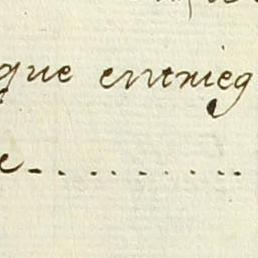 que entrieg
e- . . . . . . .